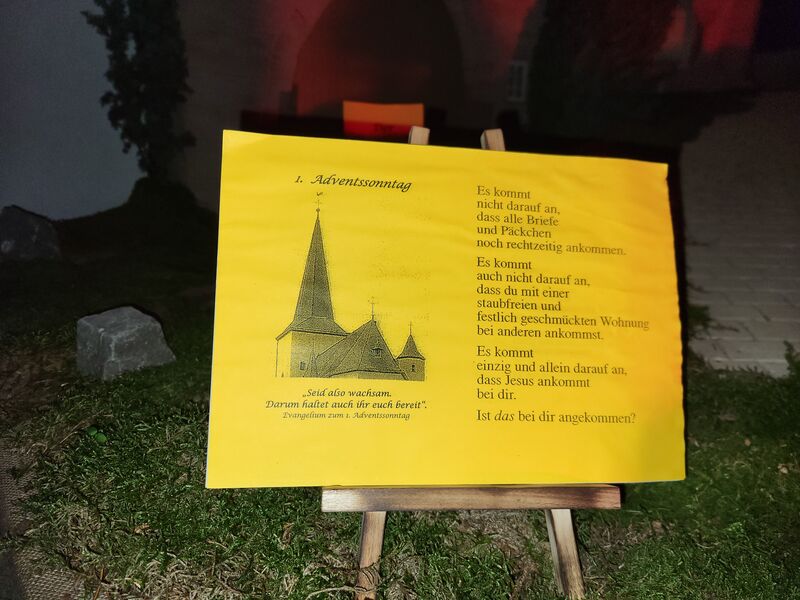 1. Adventssonntag
„Seid also wachsam.
Darum haltet auch ihr euch bereit“.
Evangelium zum 1. Adventssonntag
Es kommt
nicht darauf an,
dass alle Briefe
und Päckchen
noch rechtzeitig ankommen.
Es kommt
auch nicht darauf an,
dass du mit einer
staubfreien und
festlich geschmückten Wohnung
bei anderen ankommst.
Es kommt
einzig und allein darauf an,
dass Jesus ankommt
bei dir.
Ist das bei dir angekommen?